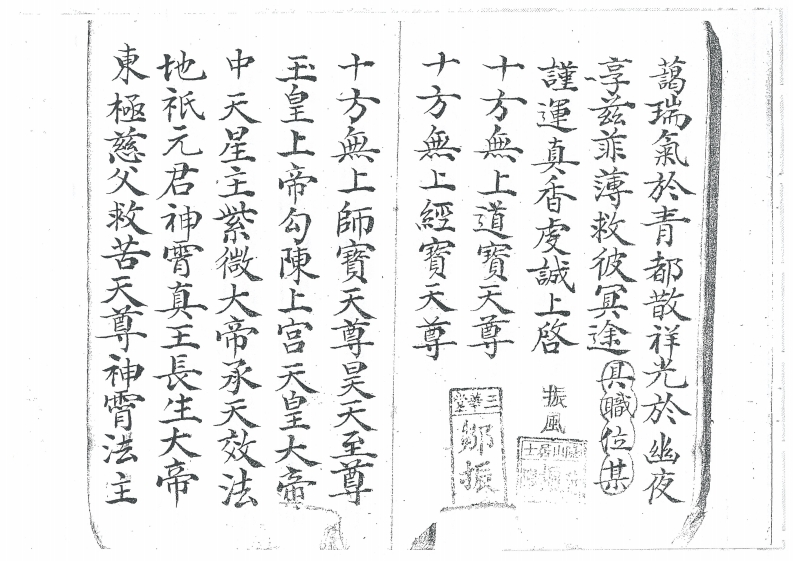 藹瑞氣於青都散祥光於幽夜
享兹菲薄救彼冥途具職位某
謹運真香虔誠上啓
十方無上道寶天尊
十方無上經寶天尊
振風
三華堂
鄒振
十方無上師寶天尊昊天至尊
玉皇上帝勾陳上宮天皇大帝
中天星主紫微大帝承天效法
地祇元君神霄真王長生大帝
東極慈父救苦天尊神霄法主